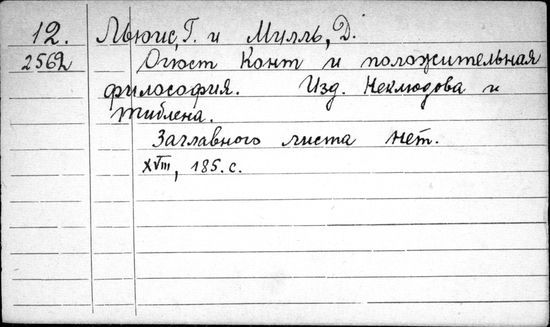 12. Льюис, Г. и Милль, Д.
2562 Огюст Конт и положительная
философия. Изд. Неклюдова и
Тиблена.
Заглавного листа нет.
XVIII, 185. с.